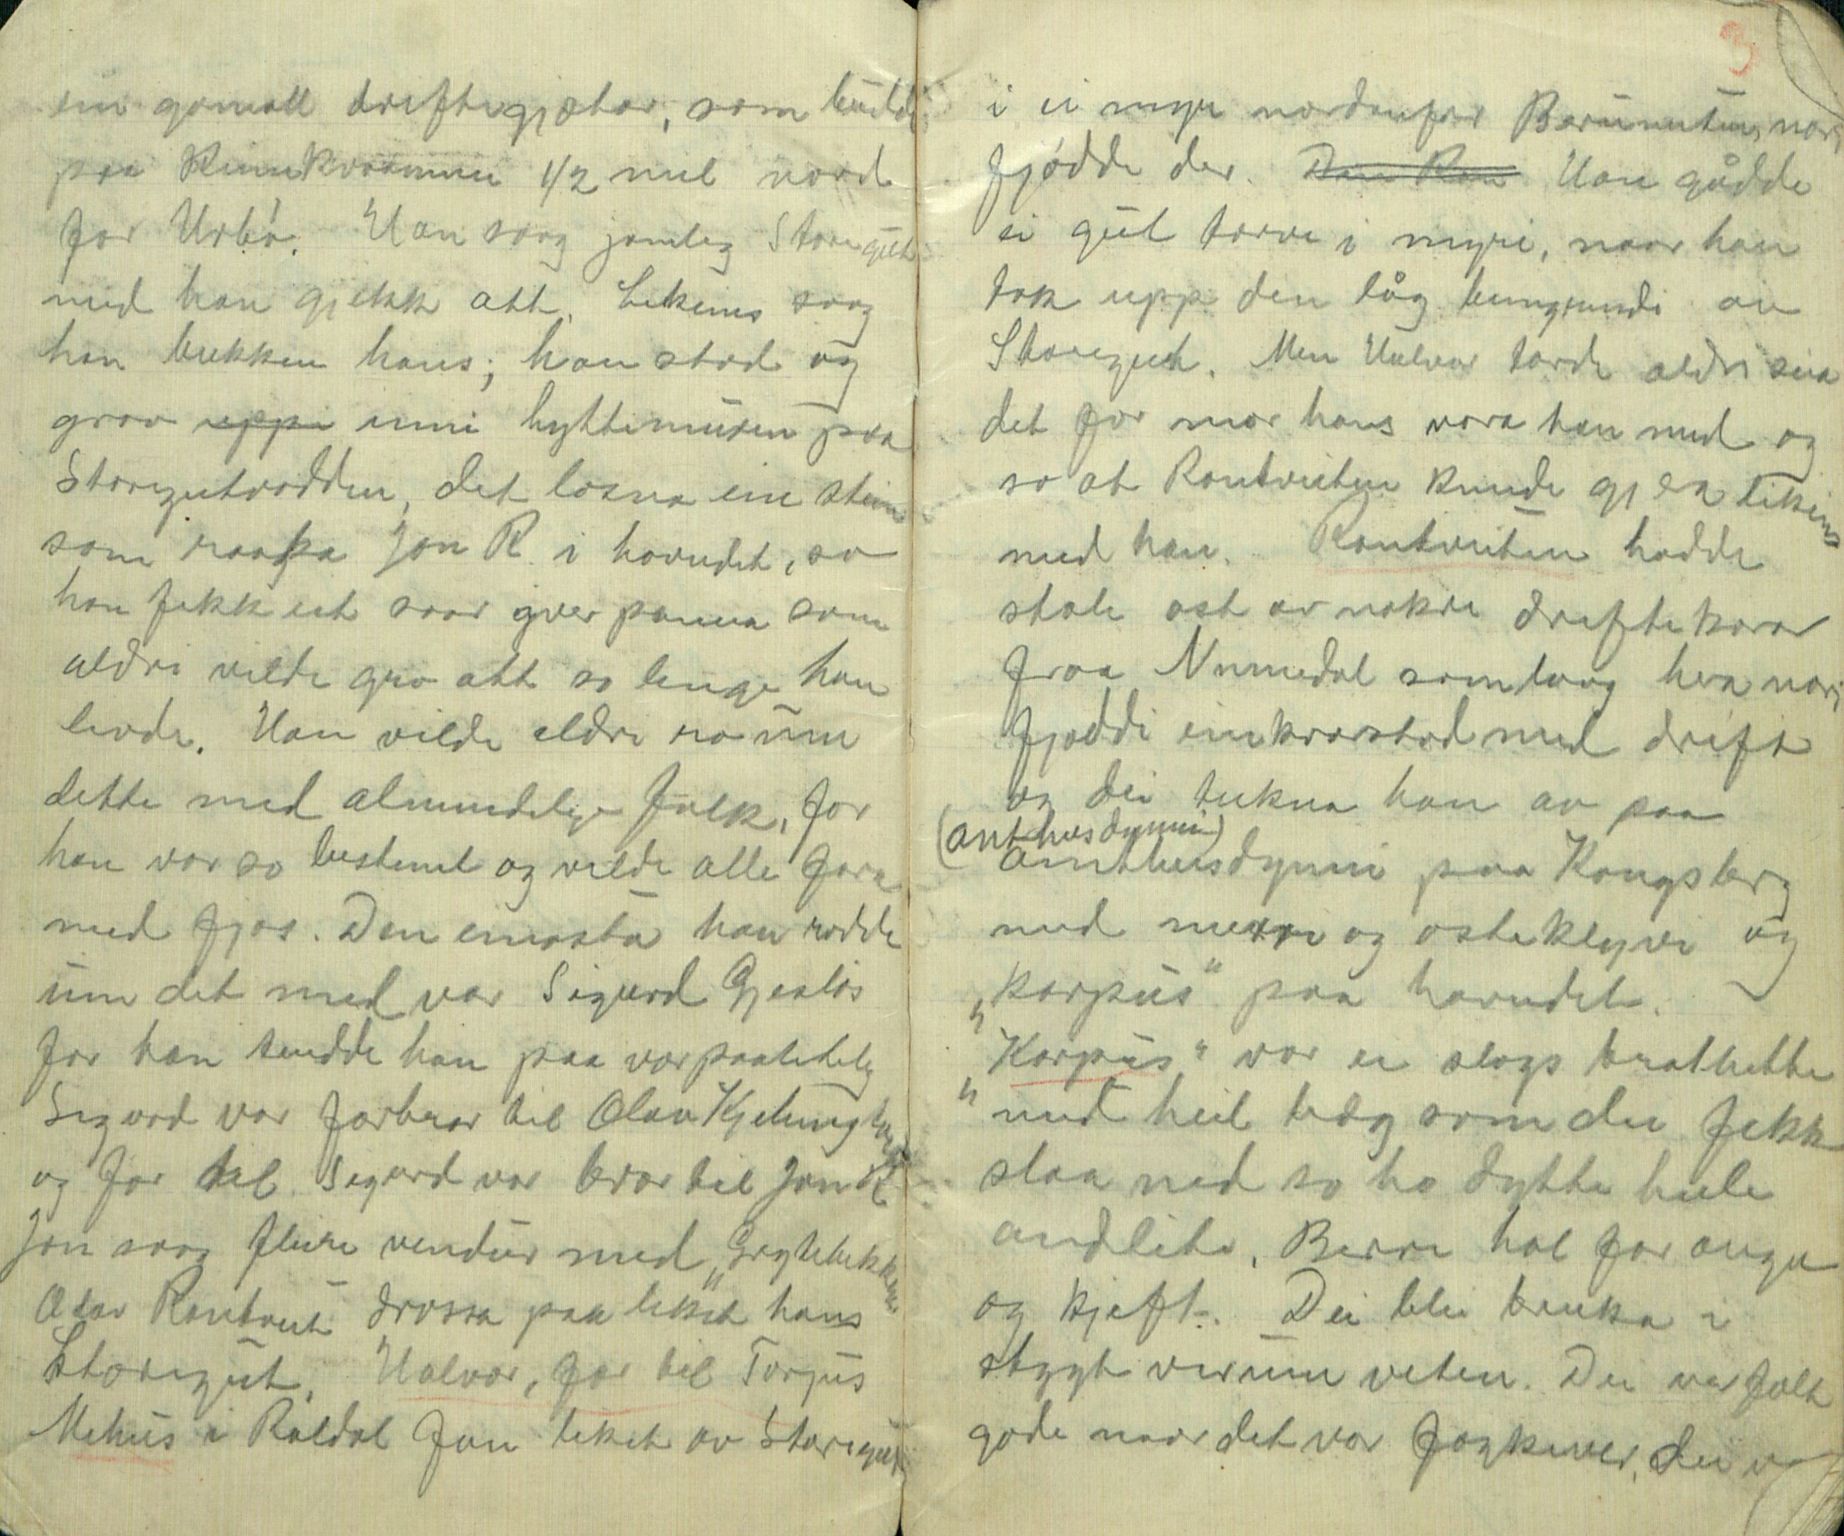 ein gamall driftegjætar, som budde
paa Kinnkvaamnii 1/2 mil nord
for Urbø. Han saag jamleg Storegut
med han gjekk att. Likeins saag
han bukken hans; han stod og
grov uppi inni hyttemuren paa
Storegutvodden, det losna ein stein
som raaka Jon R i hovudet, so
han fekk eit saar yver panna som
aldri vilde gro att so lenge han
livde. Han vilde aldri ro um
dette med almindelige folk, for
han var so bestemt og vilde alle fara
med fjas. Den einaste han rødde
um det med var Sigurd Gjealøs
for han trudde han paa var paalitely
Sigurd var farbror til Olav
og far til Sigurd var bror til Jon R
Jon saag fleire vendur med „Grytebukken"
Olav Rontveit drossa paa liket hans
Storegut. Halvor, far til Torjus
Mehus i Røldal fan liket av Storegut
3
i ei myr nordanfor Berunuten, nor,
fjødde der. Den Ron Han gådde
ei gul torve i myri, naar han
tok upp den låg bungrundi av
Storegut. Men Halvor torde aldri seia
det for mor hans vara han med og
so at Rontveiten kunde gjera likeins
med han. Rontveiten hadde
stole ost av nokre driftekarar
fraa Numedal som laag her nor,
fjøddi einkvarstad med drift
og dei tukna han av paa
(anthusdynni)
amthusdynni paa Kongsberg
med merri og osteklyvi og
„korpus" paa hovudet.
„Korpus" var ei slags bratthette
„med heil bæg som dei fekk
slaa ned so ho dytte heile
andlite. Berre hol for augu
og kjeft. Dei blei bruka i
stygt verum veten. Dei var følt
gode naar det var fogkever, dei va